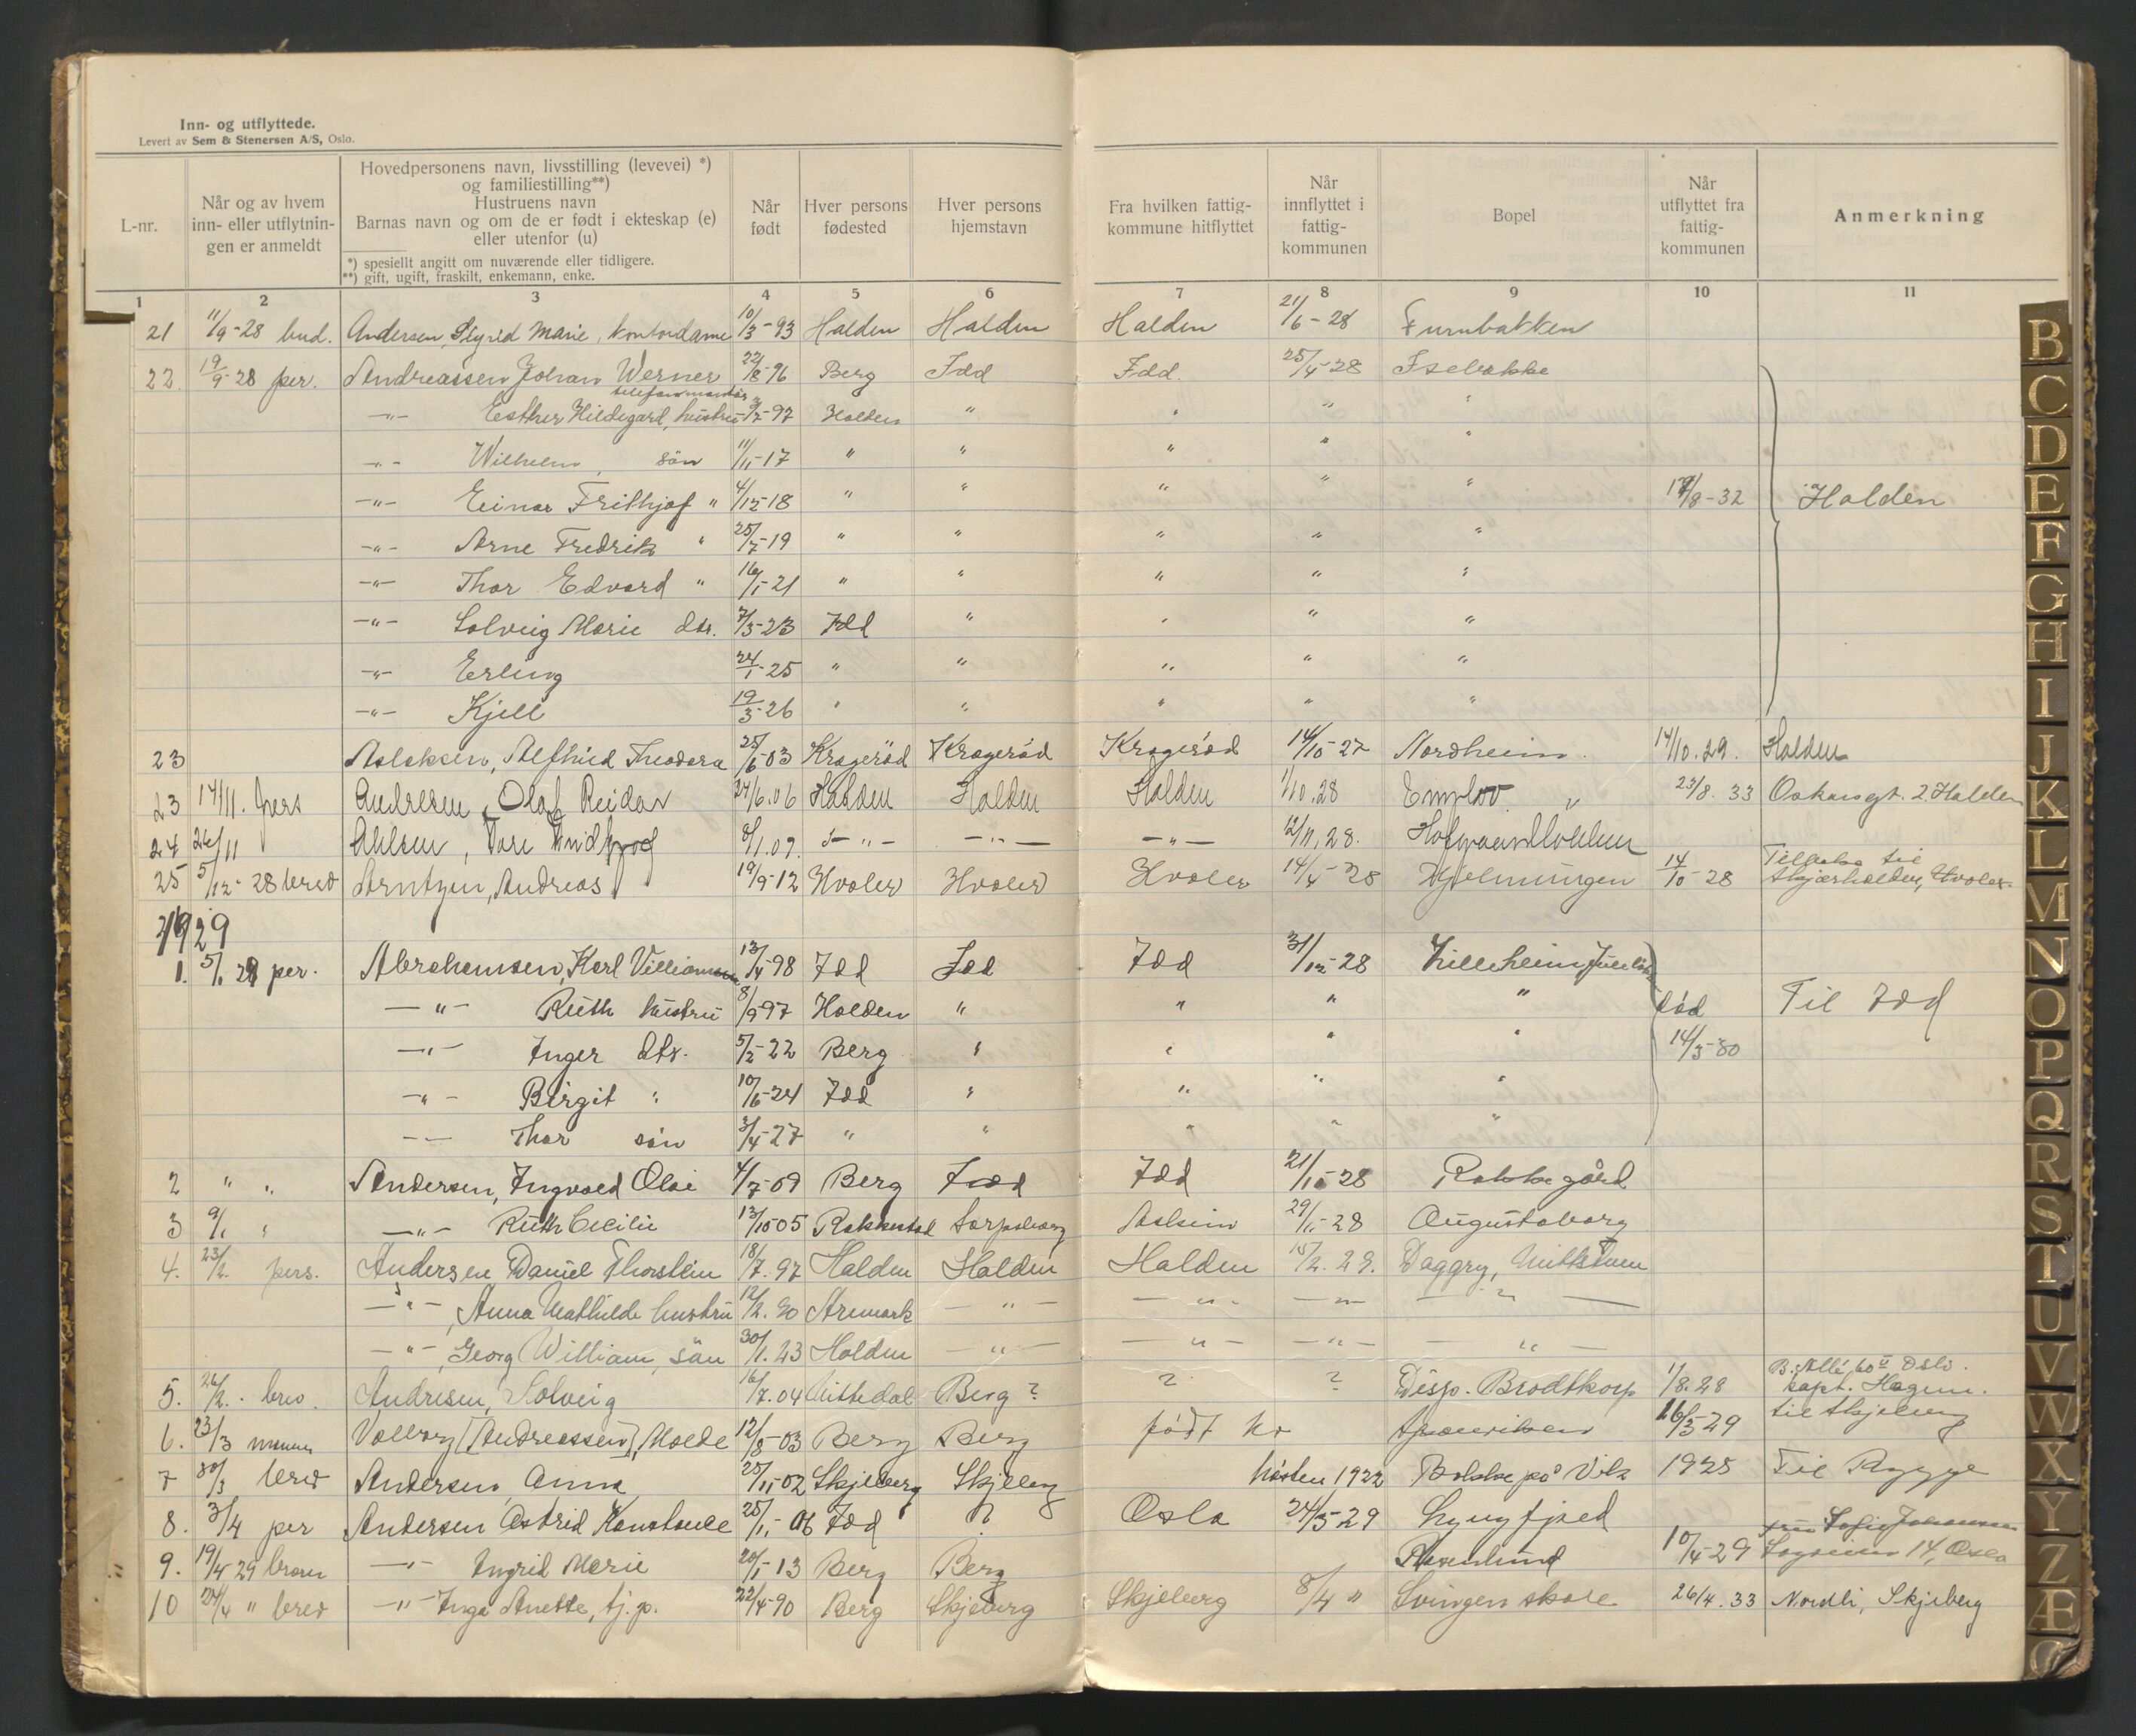 Inn- og utflyttede.
Levert av Sem & Stenersen A/S, Oslo.
L-nr. | Når og av hvem inn- eller utflytningen er anmeldt | Hovedpersonens navn, livsstilling (levevei) *) og familiestilling**) Hustruens navn Barnas navn og om de er født i ekteskap (e) eller utenfor (u) *) spesiellt angitt om nuværende eller tidligere. **) gift, ugift, fraskilt, enkemann, enke. | Når født | Hver persons fødested | Hver persons hjemstavn | Fra hvilken fattigkommune hitflyttet | Når innflyttet i fattigkommunen | Bopel | Når utflyttet fra fattigkommunen | Anmerkning
1 2 3 4 5 6 7 8 9 10 11
21 11/9-28 bud. Andersen, Sigrid Marie, kontordame 10/3-93 Halden Halden Halden 21/6-28 Furubakken
22. 19/9-28 per. Andreassen Johan Werner 22/8-96 Berg Idd Idd. 25/4-28 Isebakke
-"- Esther Hildegard, hustru -97 Halden " " " "
-"- Wilhelm, sön 11/11-17 " " " " "
-"- Einar Frithjof " 4/12-18 " " " " " 17/8-32 Halden
-"- Arne Fredrik " 25/7-19 " " " " "
-"- Thor Edvard " 16/1-21 " " " " "
-"- Solveig Marie dtr. 7/3-23 Idd " " " "
-"- Erling 24/1-25 " " " " "
-"- Kjell 19/3-26 " " " " "
23 Aslaksen, Alfhild Theodora 25/6-03 Kragerød Kragerød Kragerød 14/10-27 Nordheim. 14/10.29. Halden
23 14/11. pers Andresen, Olaf Reidar 24/6.06 Halden Halden Halden 1/10.28 " 23/8.33 Oskarsgt. 2. Halden
24 26/11 Ahlsen, 8/1.09. -"- -"- -"- 12/11.28.
25 5/12-28 brev Arntzen, Andreas 19/9-12 Hvaler Hvaler Hvaler 14/4-28 Hjelmungen 14/10-28 Tilbake til Skjærhalden, Hvaler
1929
1. 5/1 29 per. Abrahamsen, Karl Villiam 13/4-98 Idd Idd Idd 31/12-28 Lilleheim,
-"- Ruth hustru 8/9-97 Halden " " " " Idd Til Idd
-"- Inger dtr. 5/2-22 Berg " " " " 14/3-30
-"- Birgit " 10/6-24 Idd " " " "
-"- Thor sön 3/4-27 " " " " "
2 " " Andersen, Ingvald Olai 4/7-09 Berg Idd Idd 21/12-28 Rokke gård
3 9/1 " -"- Ruth Cecilie 13/10-05 Rakkestad Sarpsborg Askim 29/11-28 Augustaborg
4. 23/2. pers. Andersen Daniel Thorstein 18/7.97 Halden Halden Halden 15/2.29. Daggry,
-"-, Anna Mathilde hustru 12/2.90 Aremark -"- -"- -"- -"-
-"-, Georg William, sön 30/1.23 Halden -"- -"- -"- -"-
5. 26/2. brev. Andresen, Solveig 16/7.04 Berg ? ? ? Disp. Brodtkorp 1/8.28 B. Allé, 60 II Oslo. kapt. Hagem.
6. 23/3 Volberg [Andreassen], Molde 12/8-03 Berg Berg født her 16/3-29 til Skjeberg
7 30/3 brev Andersen Anna 25/11-02 Skjeberg Skjeberg høsten 1922 Bakke på Vik 1925 Til Rygge
8. 3/4 per Andersen Astrid Konstance 25/11-06 Idd ? Oslo 24/3-29 Lyngfjeld
9. 19/4 29 -"- Ingrid Marie 20/1-13 Berg Berg Rosenlund 10/4-29 fru Sofie Johannsen 14, Oslo
10 24/4 " brev -"- Inga Anette, tj.p. 22/4-90 Berg Skjeberg Skjeberg 8/4 " Svingen skole 26/4.33 Nordli, Skjeberg
B
C
D
E
F
G
H
I
J
K
L
M
N
O
P
Q
R
S
T
U
V
W
X
Y
Z
Æ